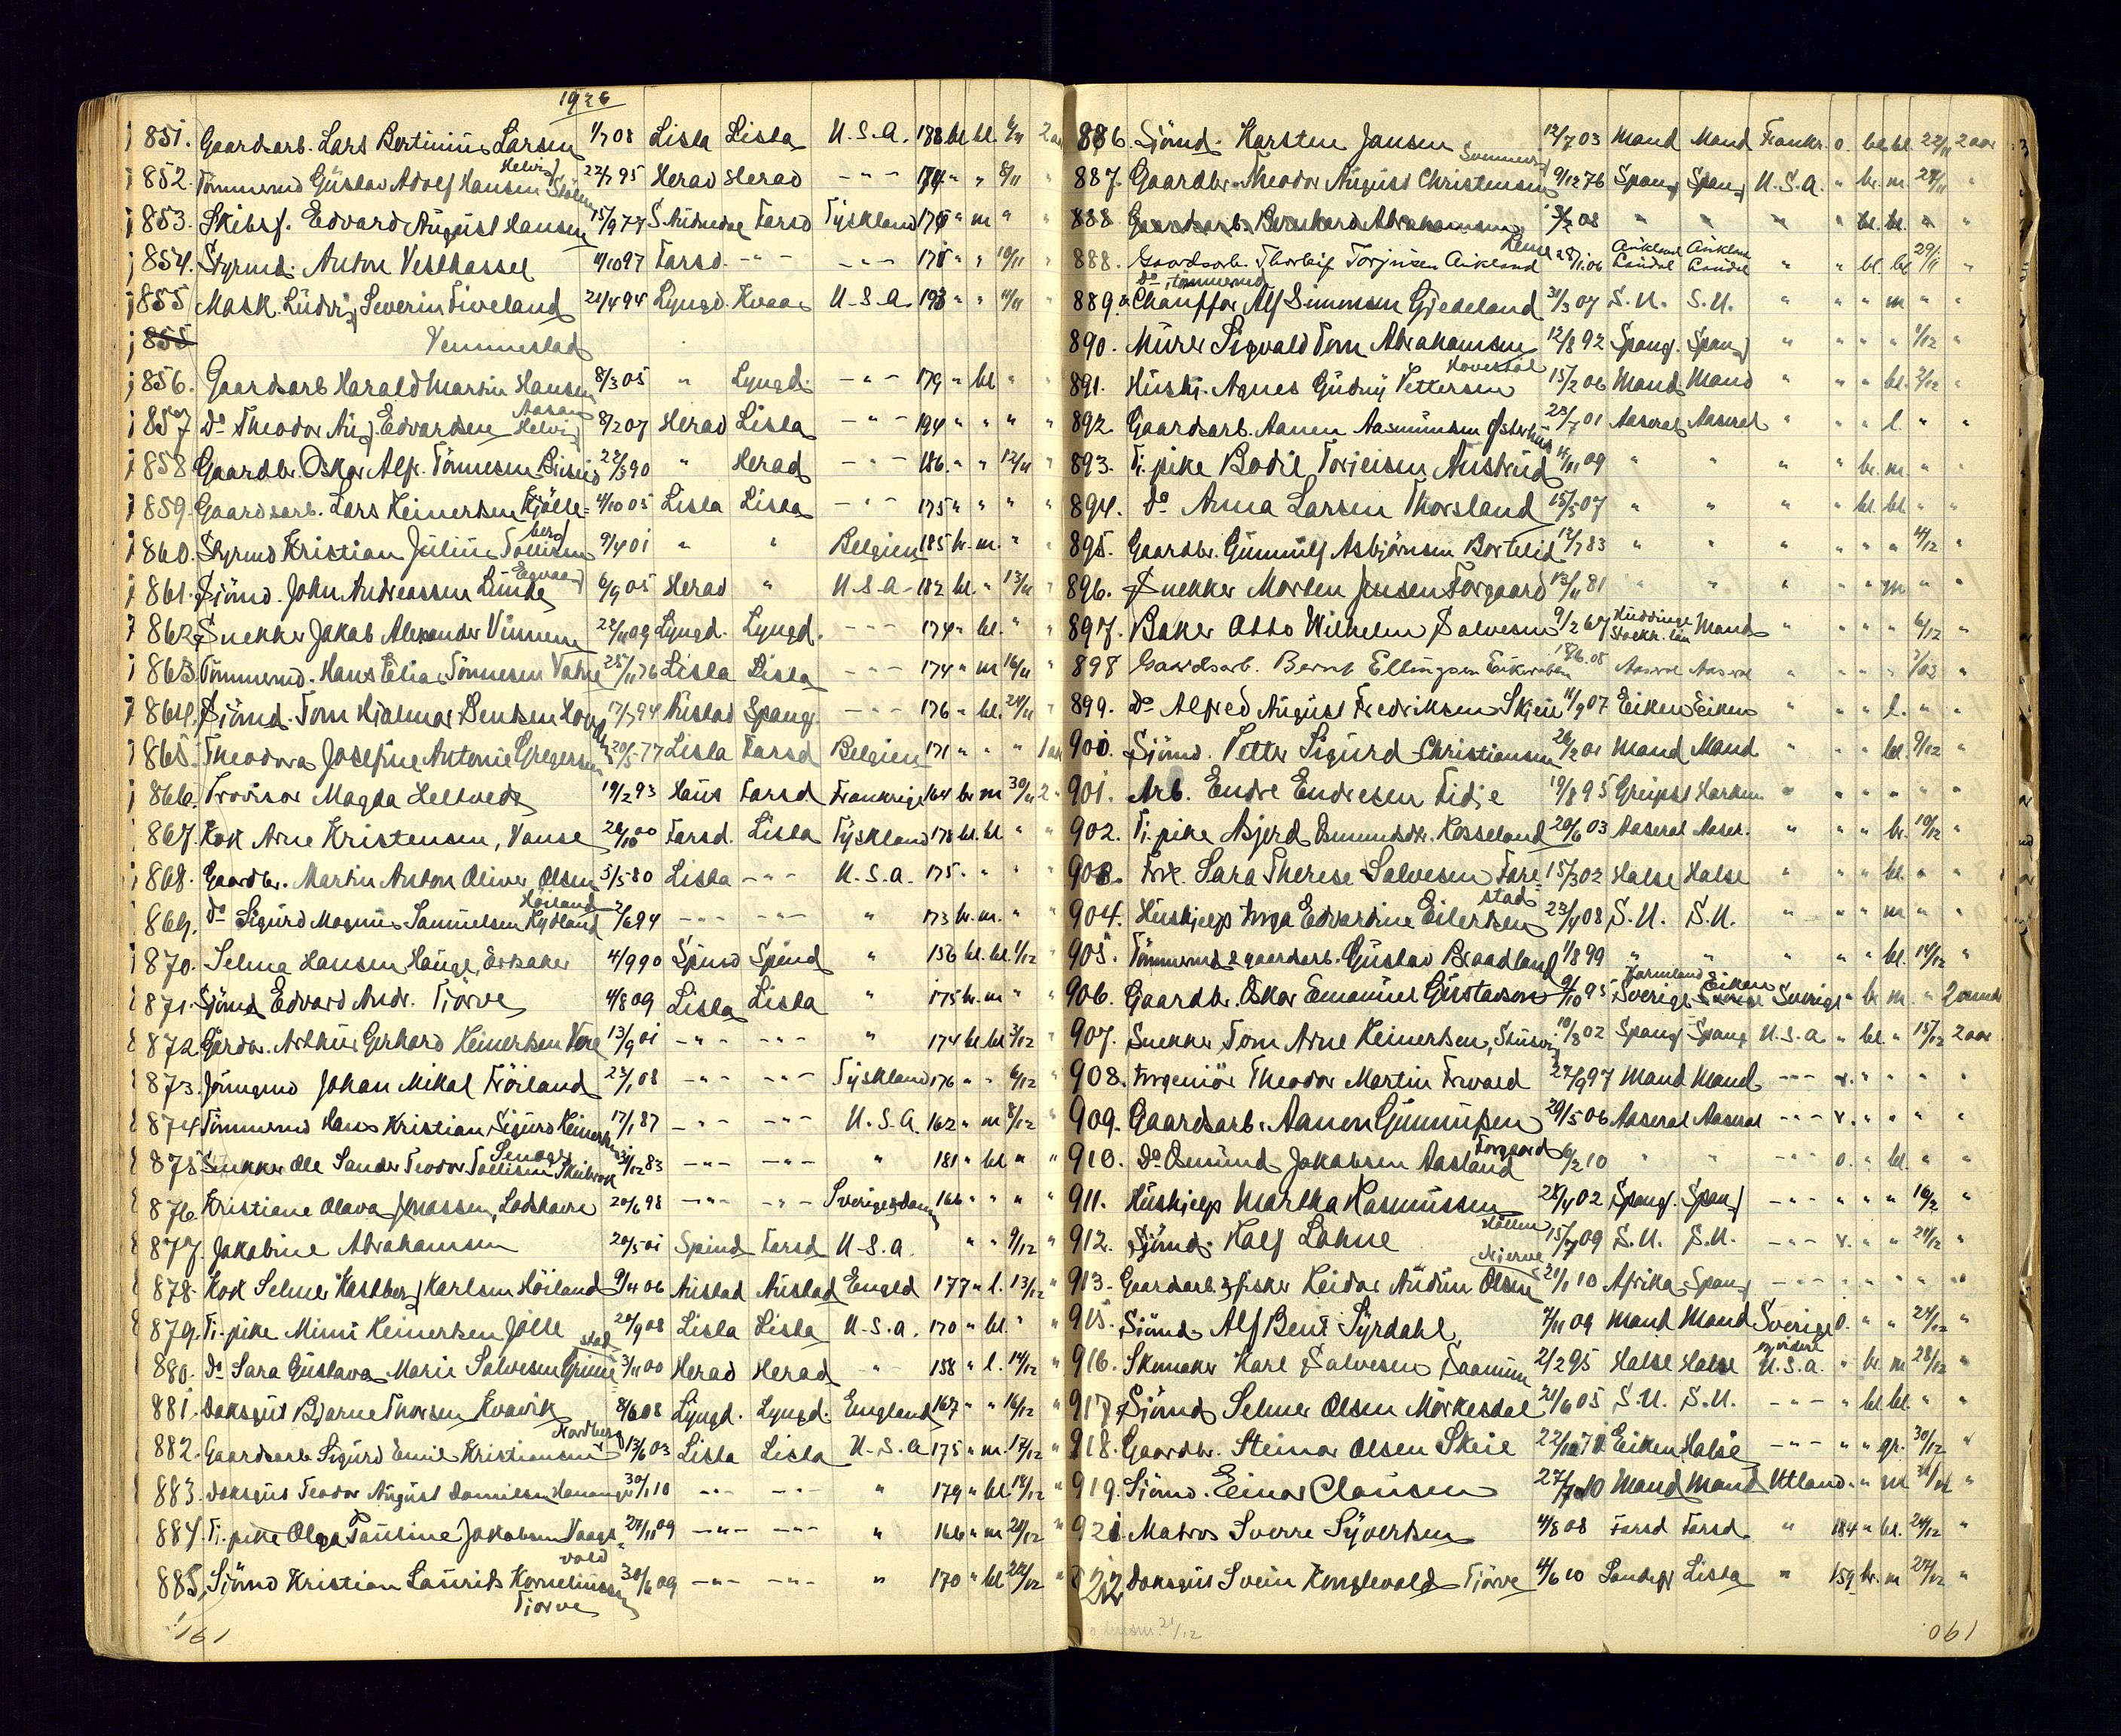 1926
851. Gaardsarb. Lars Bertinius Larsen 1/7 08 Lista Lista U.S.A. 178 bl bl. 6/11 2 aar
852. Tømmermd Gustav Adolf Hansen Helvig 22/7 95 Herad Herad -"- " " 8/11 "
853. Skibsf. Edvard August Hansen 15/9 77 S. Audnedal Farsd Tyskland 170 " m " "
854. Styrmd. Anton Vesthassel 11/10 97 Farsd. -"- -"- 178 " " 10/11 "
855 Mask. Ludvig Severin Tiveland 21/4 94 Lyngd. Kvaas U.S.A. 193 " " 11/11 "
855
Vemmestad
856. Gaardsarb Harald Martin Hansen 8/3 05 " Lyngd. -"- 179 " bl " "
857 Do Theodor Aug Edvardsen Aasan Helvig 8/2 07 Herad Lista -"- 194 " " " "
858 Gaardbr. Oskar Alfr. Tønnesen Briseid 22/3 90 " Herad -"- 186 " " 12/11 "
859. Gaardsarb. Lars Reinertsen Kjølle= 4/10 05 Lista Lista -"- 175 " " " "
berg
860. Styrmd Kristian Julius Tollisen 9/4 01 " " Belgien 185 br. m. " "
861. Sjömd. John Andreassen Lunde Eqvaag 6/9 05 Herad " U.S.A. 182 bl. " 13/11 "
862 Snekker Jakob Alexander Vinnem 22/11 09 Lyngd. Lyngd. -"- 174 " bl. " "
863 Tømmermd. Hans Elias Tønnesen Vatne 25/11 76 Lista Lista -"- 174 " m 16/11 "
864. Sjömd. Tom Hjalmar Bentsen 17/7 94 Austad Spang -"- 176 " bl. 24/11 "
865. Theodora Josefine Antonie Gregersen 20/5 77 Lista Farsd Belgien 171 " " " 1 aar
866. Provisor Magda Heltvedt 19/2 93 Haus Farsd Frankrige 164 br m 30/11 2 "
867. Kok Arne Kristensen, Vanse 28/10 00 Farsd. Lista Tyskland 178 bl. bl " "
868. Gaardbr. Martin Anton Oliver Olsen 5/5 80 Lista -"- U.S.A. 175 " " " "
Høiland
869. Do Sigurd Magnus Samuelsen Kydland 2/6 94 -"- -"- " 173 br. m. " "
870. Selma Hansen Hauge, Ersaker 4/9 90 Spind Spind " 156 bl. bl. 1/12 "
871. Sjömd Edvard Andr. Tjörve 4/8 09 Lista Lista " 175 br. m " "
872 Gardbr. Arthur Gerhard Reinertsen Vere 13/9 01 -"- -"- " 174 bl bl 3/12 "
873. Jüngmd Johan Mikal Frøiland 23/1 08 -"- -"- Tyskland 176 " " 6/12 "
874 Tømmermd Hans Kristian Sigurd Reinertsen 17/1 87 -"- -"- U.S.A. 162 " m 8/12 "
875 Snekker Ole Sander Teodor Tollisen Skeibrok 31/12 83 -"- -"- " 181 " bl " "
876. Kristiane Olava Jonassen, Lodshavn 20/6 98 -"- -"- Sverige & Danm 166 " " " "
877. Jakobine Abrahamsen 20/5 01 Spind Farsd U.S.A. " " 9/12 "
878. Kok Selmer Kastberg Karlsen Høiland 9/4 06 Austad Austad Engld 177 " l. 13/12 "
879. Tj.pike Mimi Reinertsen Jølle 20/9 08 Lista Lista U.S.A. 170 " bl. " "
stad
880. Do Sara Gustava Marie Salvesen Grim 3/11 00 Herad Herad -"- 158 " l. 14/12 "
881. Doksgut Bjarne Thorsen Kvavik 8/6 08 Lyngd. Lyngd. England 167 " " 16/12 "
Nordberg
882. Gaardsarb Sigurd Emil Kristiansen 13/6 03 Lista Lista U.S.A 175 " m. 17/12 "
883. Doksgut Teodor August Danielsen Hananger 30/1 10 -"- -"- " 179 " bl 18/12 "
884. Tj. pike Olga Pauline Jakobsen Vaags 24/11 09 -"- -"- " 166 " m 20/12 "
vold
885. Sjömd Kristian Laurits Korneliussen 30/6 09 -"- -"- " 170 " bl 22/12 "
Tjørve
161
886. Sjömd. Karsten Jansen 12/7 03 Mand Mand Frankr. o. bl. bl. 22/11 2 aar
887. Gaardbr. Theodor August Christensen 9/12 76 Spang Spang U.S.A. " br. m. 24/11 "
888 Gaardsarb. Bernhard Abrahamsen 5/2 08 " " " bl. bl. " "
888. Gaardsarb. Thorleif Torjusen Aikland 28/1 06 Aikland Laudal Aikland Laudal " " bl. bl. 29/11 "
Do, tømmermd
889. & Chauffør Alf Simonsen Gjedeland 31/3 07 S.U. S.U. " " " m " "
890. Murer Sigvald Tom Abrahamsen 12/8 92 Spang. Spang " " " " 1/12 "
891. Hushj. Agnes Gudny Pettersen 15/2 06 Mand Mand " " " bl. 2/12 "
892. Gaardsarb. Aanen Aasmundsen Østerhus 23/7 01 Aaseral Aaseral " " " l. " "
893. Tj. pike Bodil Torjeisen Austrud 14/11 09 " " " " br. m. " "
894. Do Anna Larsen Thorsland 15/5 07 " " " " bl. bl. " "
895. Gaardbr. Gunnulf Asbjørnsen Bortelid 12/7 83 " " " " " " 4/12 "
896. Snekker Morten Jensen Forgaard 13/11 81 " " " " " m " "
897. Baker Otto Wilhelm Salvesen 9/2 67 Huddinge Stockh. län Mand " " " " 6/12 "
898 Gaardsarb. Bernt Ellingsen 18/6.08 Aaseral Aaseral " " " " "
899. Do Alfred August Fredriksen Skjeie 11/9 07 Eiken Eiken " " " l. " "
900. Sjömd. Petter Sigurd Christiansen 26/2 01 Mand Mand " " " bl. 9/12 "
901. Arb. Endre Endresen Fidje 19/8 95 Greipst Harkm " " " " " "
902. Tj. pike Asjerd Osmundsdtr. Kosseland 20/6 03 Aaseral Aaser. " " " br. 10/12 "
903. Frk. Sara Therese Salvesen Fare 15/3 02 Halse Halse " " " bl. " "
stad
904. Hushjelp Inga Edvardine Eilertsen 23/4 08 S.U. S.U. " " " m " "
905. Tømmermd & gaardsarb. Gustav Braadland 1/8 99 " " " " " bl. 14/12 "
906. Gaardbr. Oskar Emanuel Gustavson 9/10 95 Värmland Sverige Eiken Sverige " br m. " 2 mnd
907. Snekker Tom Arne Reinertsen, Stusvig 10/8 02 Spang Spang U.S.a " bl. " 15/12 2 aar
908. Ingeniør Theodor Martin Forvald 24/9 97 Mand Mand -"- v. " " " "
909. Gaardsarb. Aanen Gunnufsen 29/5 06 Aaseral Aaseral -"- v. " " " "
910. Do Osmund Jakobsen Aasland Forgaard 6/2 10 " " -"- o. " bl. " "
911. Hushjelp Martha Rasmussen 28/4 02 Spang. Spang -"- " " " 16/2 "
912. Sjömd. Ralf Lohne Høllen 15/7 09 S.U. S.U. -"- v. " " 21/12 "
913. Gaardsarb & fisker Reidar Audun Olsen 21/1 10 Afrika Spang -"- " " " " "
915. Sjömd. Alf Bent Syrdahl, 4/11 09 Mand Mand Sverige o. " " 24/12 "
916. Skomaker Karl Salvesen Saanum 2/2 95 Halse Halse U.S.a. " br. m 28/12 "
917. Sjömd Selmer Olsen Mørkesdal 21/6 05 S.U. S.U. -"- " bl. bl. " "
918. Gaardbr. Steinar Olsen Skeie Eiken Halse -"- " " gr. 30/12 "
919. Sjömd. Einar Clausen 27/7 10 Mand Mand Utland. " " m "
921. Matros Sverre Syvertsen 4/8 08 Farsd Farsd. " 184 " bl. 24/12 "
922 Doksgut Svein Konglevold Tjørve 4/6 10 Landegr Lista " 159 br. m 27/12 "
061